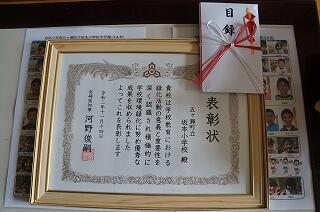 目録
表彰状
五ヶ瀬町立
坂本小学校 殿
貴校は学校教育における
緑化活動の意義と重要性を
深く認識され積極的に
学校環境緑化に努め優秀な
成果を収められました
よってこれを表彰します
令和二年十一月十四日
宮崎県知事 河野俊嗣